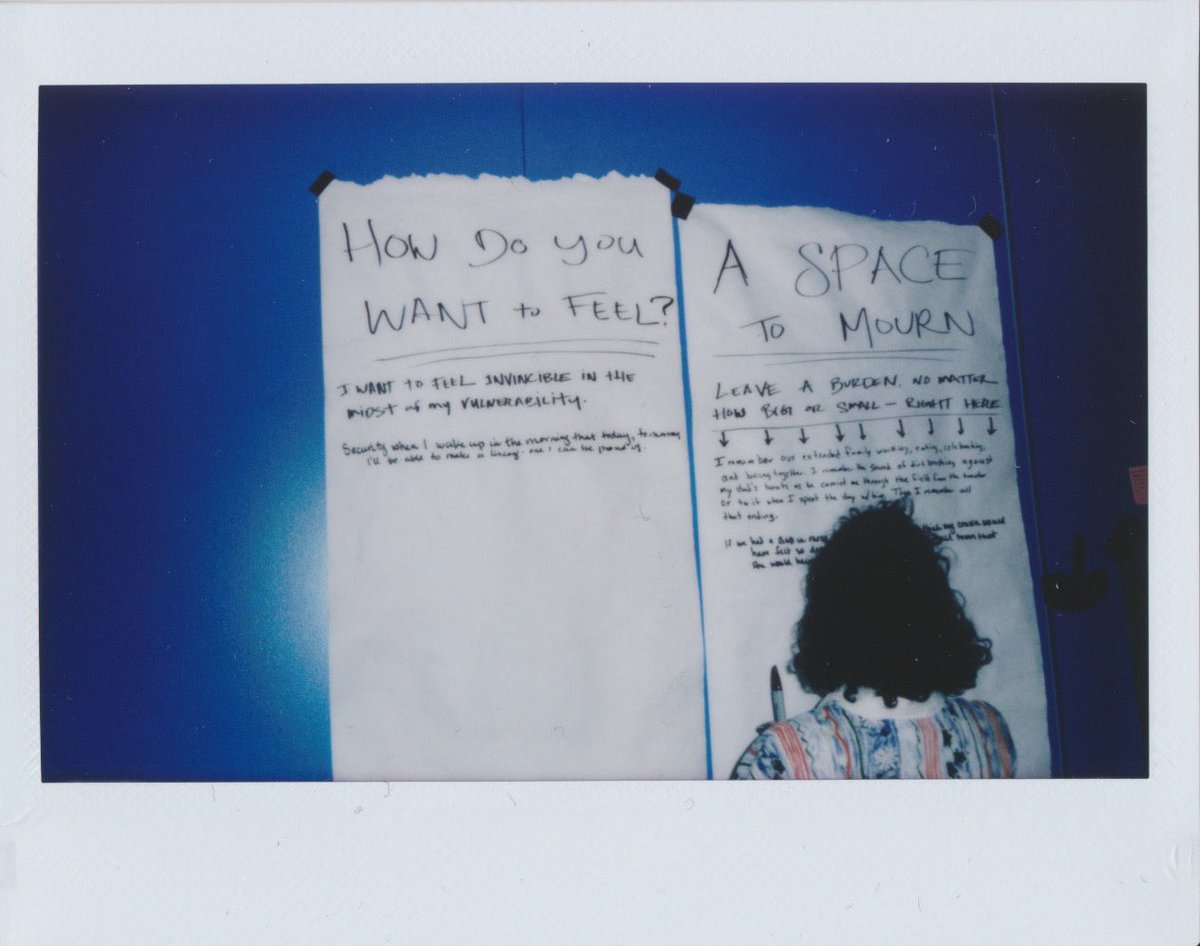 HOW DO YOU
WANT to FEEL?
I WANT TO FEEL INVINCIBLE IN THE
MIDST of my VULNERABILITY.
Security when I wake up in the morning that today, tomorrow
I'll be able to make a living. one I can be proud of.
A SPACE
TO MOURN
LEAVE A BURDEN. NO MATTER
HOW BIG OR SMALL — RIGHT HERE
↓ ↓ ↓ ↓ ↓ ↓ ↓ ↓ ↓
I remember our extended family working, eating, celebrating,
and being together. I remember the sound of dirt against
my dad's boots as he carried me through the field from the
or to it when I spent the day w/him. I remember all
that ending.
If we had a
have felt so
She would